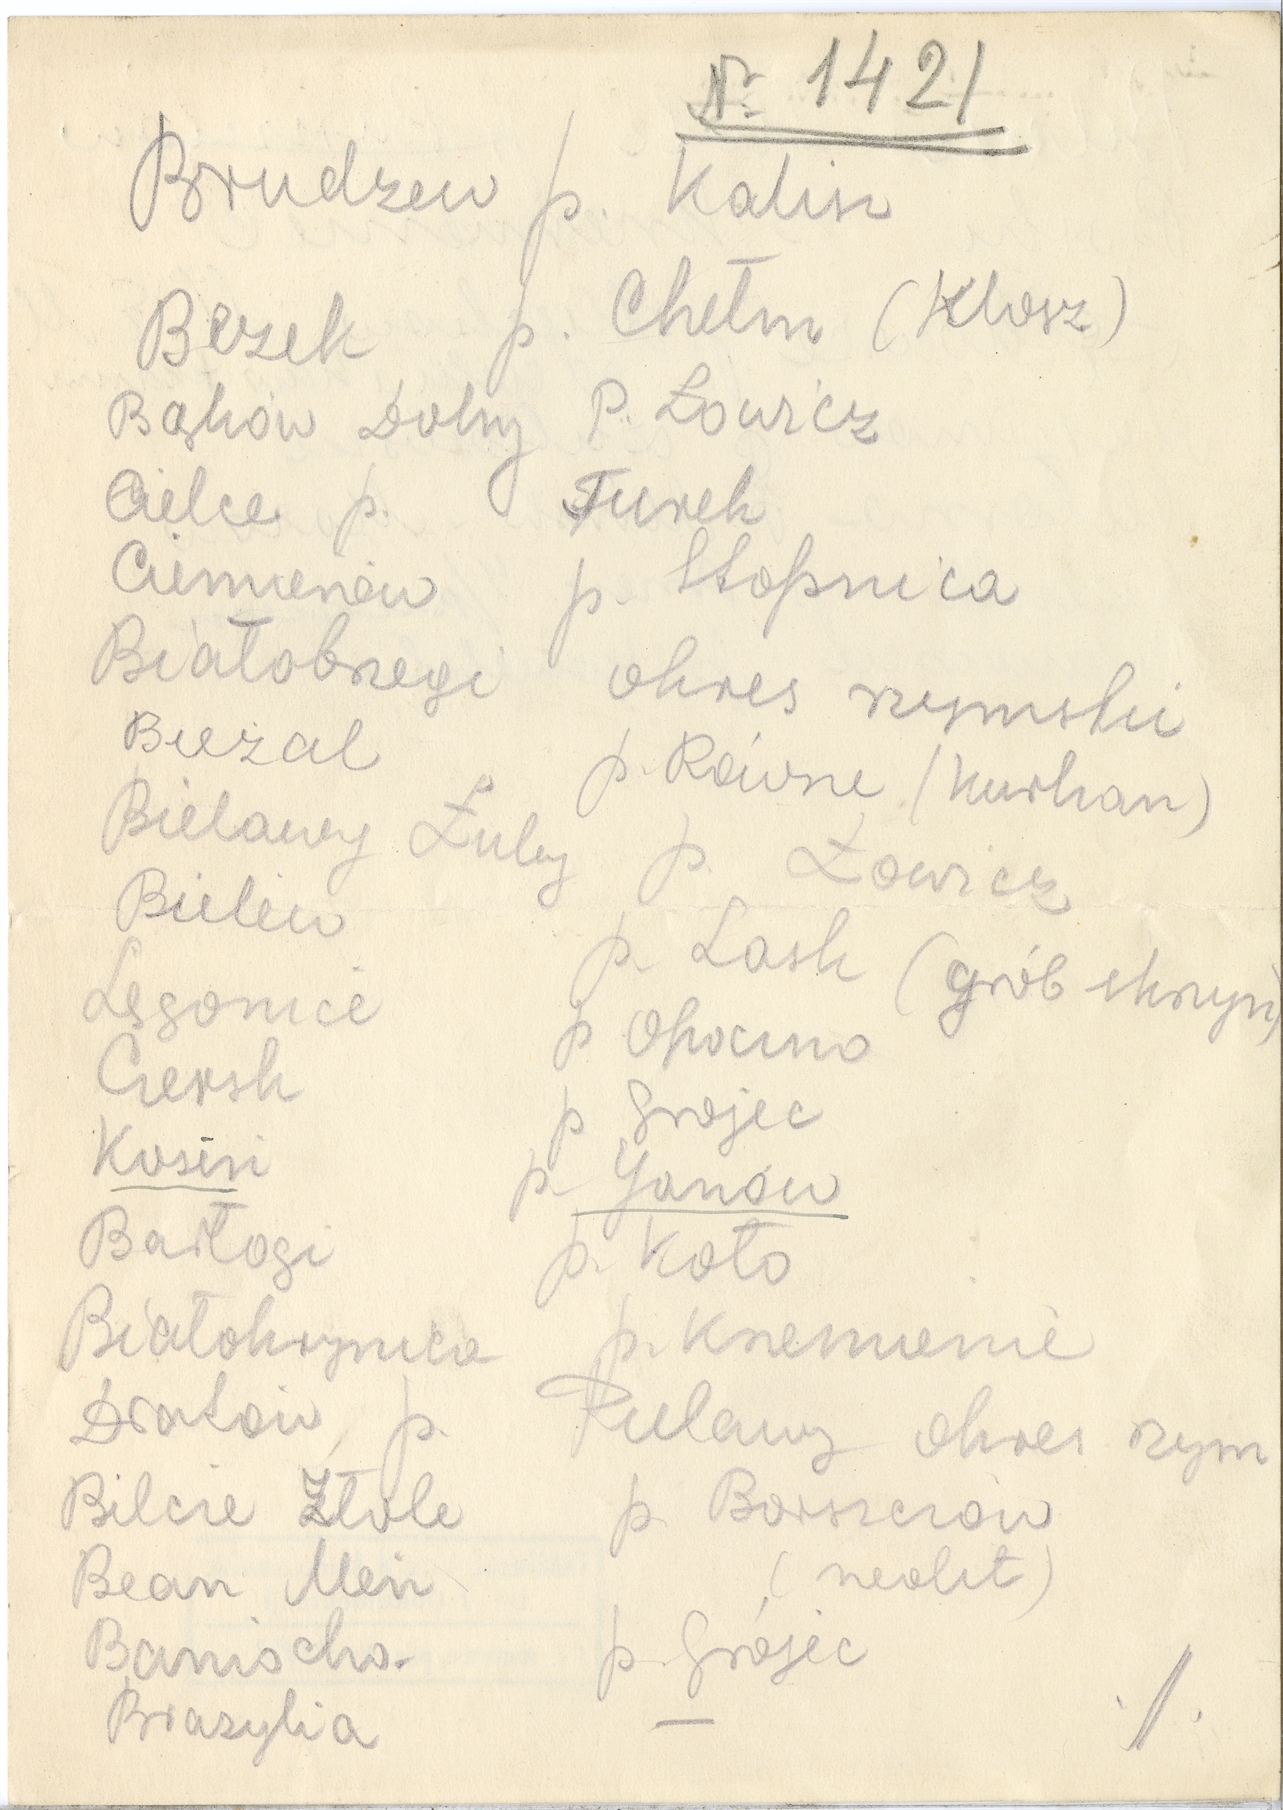 № 1421
Brudzew p. Kalisz
Bezek p. Chełm (Klosz)
Bąków Dolny P. Łowicz
Cielce p. Turek
Ciemierów p. Stopnica
Białobrzegi okres rzymski
p. Równe (Kurhan)
Bielawy Łuby p. Łowicz
Bielew p. Łask (grób skrzyn)
Łęgonice p Opoczno
Czersk p Grojec
Kosin p. Janów
Barłogi p. Koło
Białokrynica p. Krzemienie
Dratów p. Puławy okres rzym
Bilcze Złote p. Borszczów
Bean Men (neolit)
Baniocha p. Grójec
Brazylia — ./.